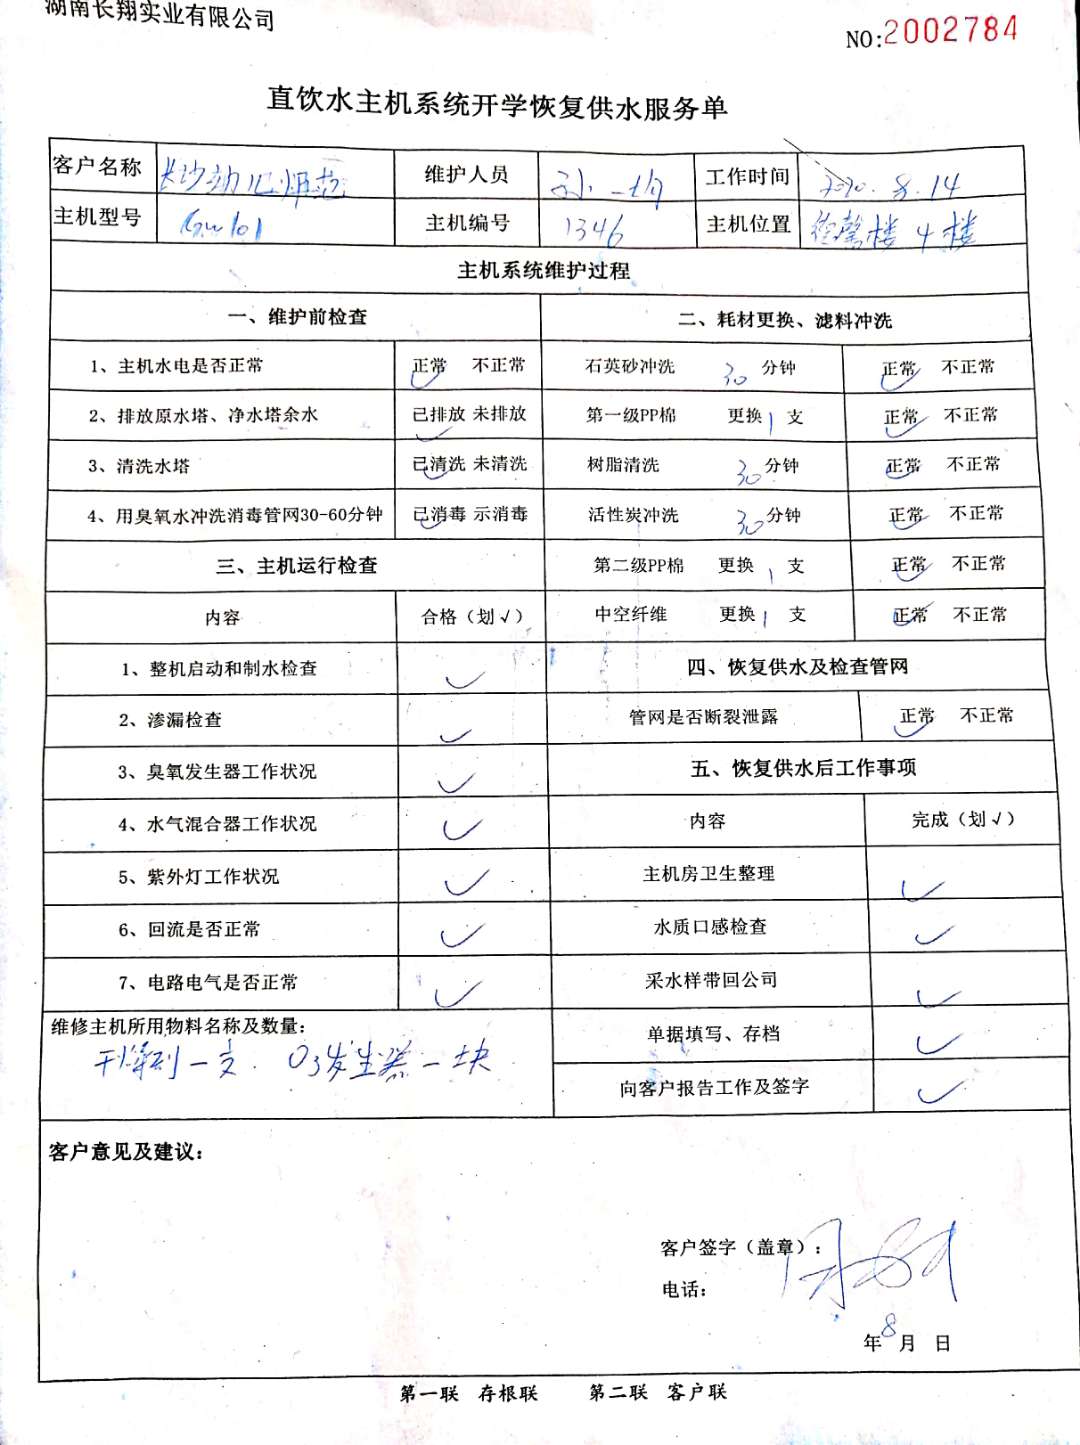 湖南长翔实业有限公司
NO:2002784
直饮水主机系统开学恢复供水服务单
客户名称 长沙幼儿师范 维护人员 孙一均 工作时间 2020.8.14
主机型号 Gw101 主机编号 1346 主机位置 馨楼4楼
主机系统维护过程
一、维护前检查 二、耗材更换、滤料冲洗
1、主机水电是否正常 正常 不正常 石英砂冲洗 30 分钟 正常 不正常
2、排放原水塔、净水塔余水 已排放 未排放 第一级PP棉 更换 1 支 正常 不正常
3、清洗水塔 已清洗 未清洗 树脂清洗 30 分钟 正常 不正常
4、用臭氧水冲洗消毒管网30-60分钟 已消毒 示消毒 活性炭冲洗 30 分钟 正常 不正常
三、主机运行检查 第二级PP棉 更换 1 支 正常 不正常
内容 合格（划√） 中空纤维 更换 1 支 正常 不正常
1、整机启动和制水检查 ✓ 四、恢复供水及检查管网
2、渗漏检查 ✓ 管网是否断裂泄露 正常 不正常
3、臭氧发生器工作状况 ✓ 五、恢复供水后工作事项
4、水气混合器工作状况 ✓ 内容 完成（划√）
5、紫外灯工作状况 ✓ 主机房卫生整理 ✓
6、回流是否正常 ✓ 水质口感检查 ✓
7、电路电气是否正常 ✓ 采水样带回公司 ✓
维修主机所用物料名称及数量： 单据填写、存档 ✓
一支．O3发生器一块 向客户报告工作及签字 ✓
客户意见及建议：
客户签字（盖章）：
电话：
年8月 日
第一联 存根联 第二联 客户联